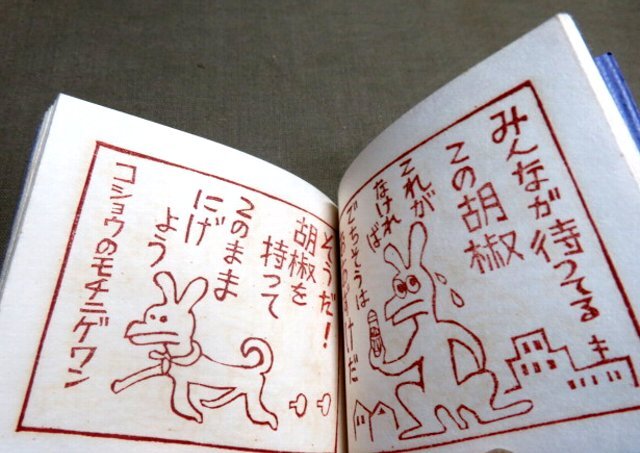 みんなが待ってる
この胡椒
これが
なければ
ごちそうは
そうだ!
胡椒を
持って
このまま
にげ
よう
コショウのモチニゲワン